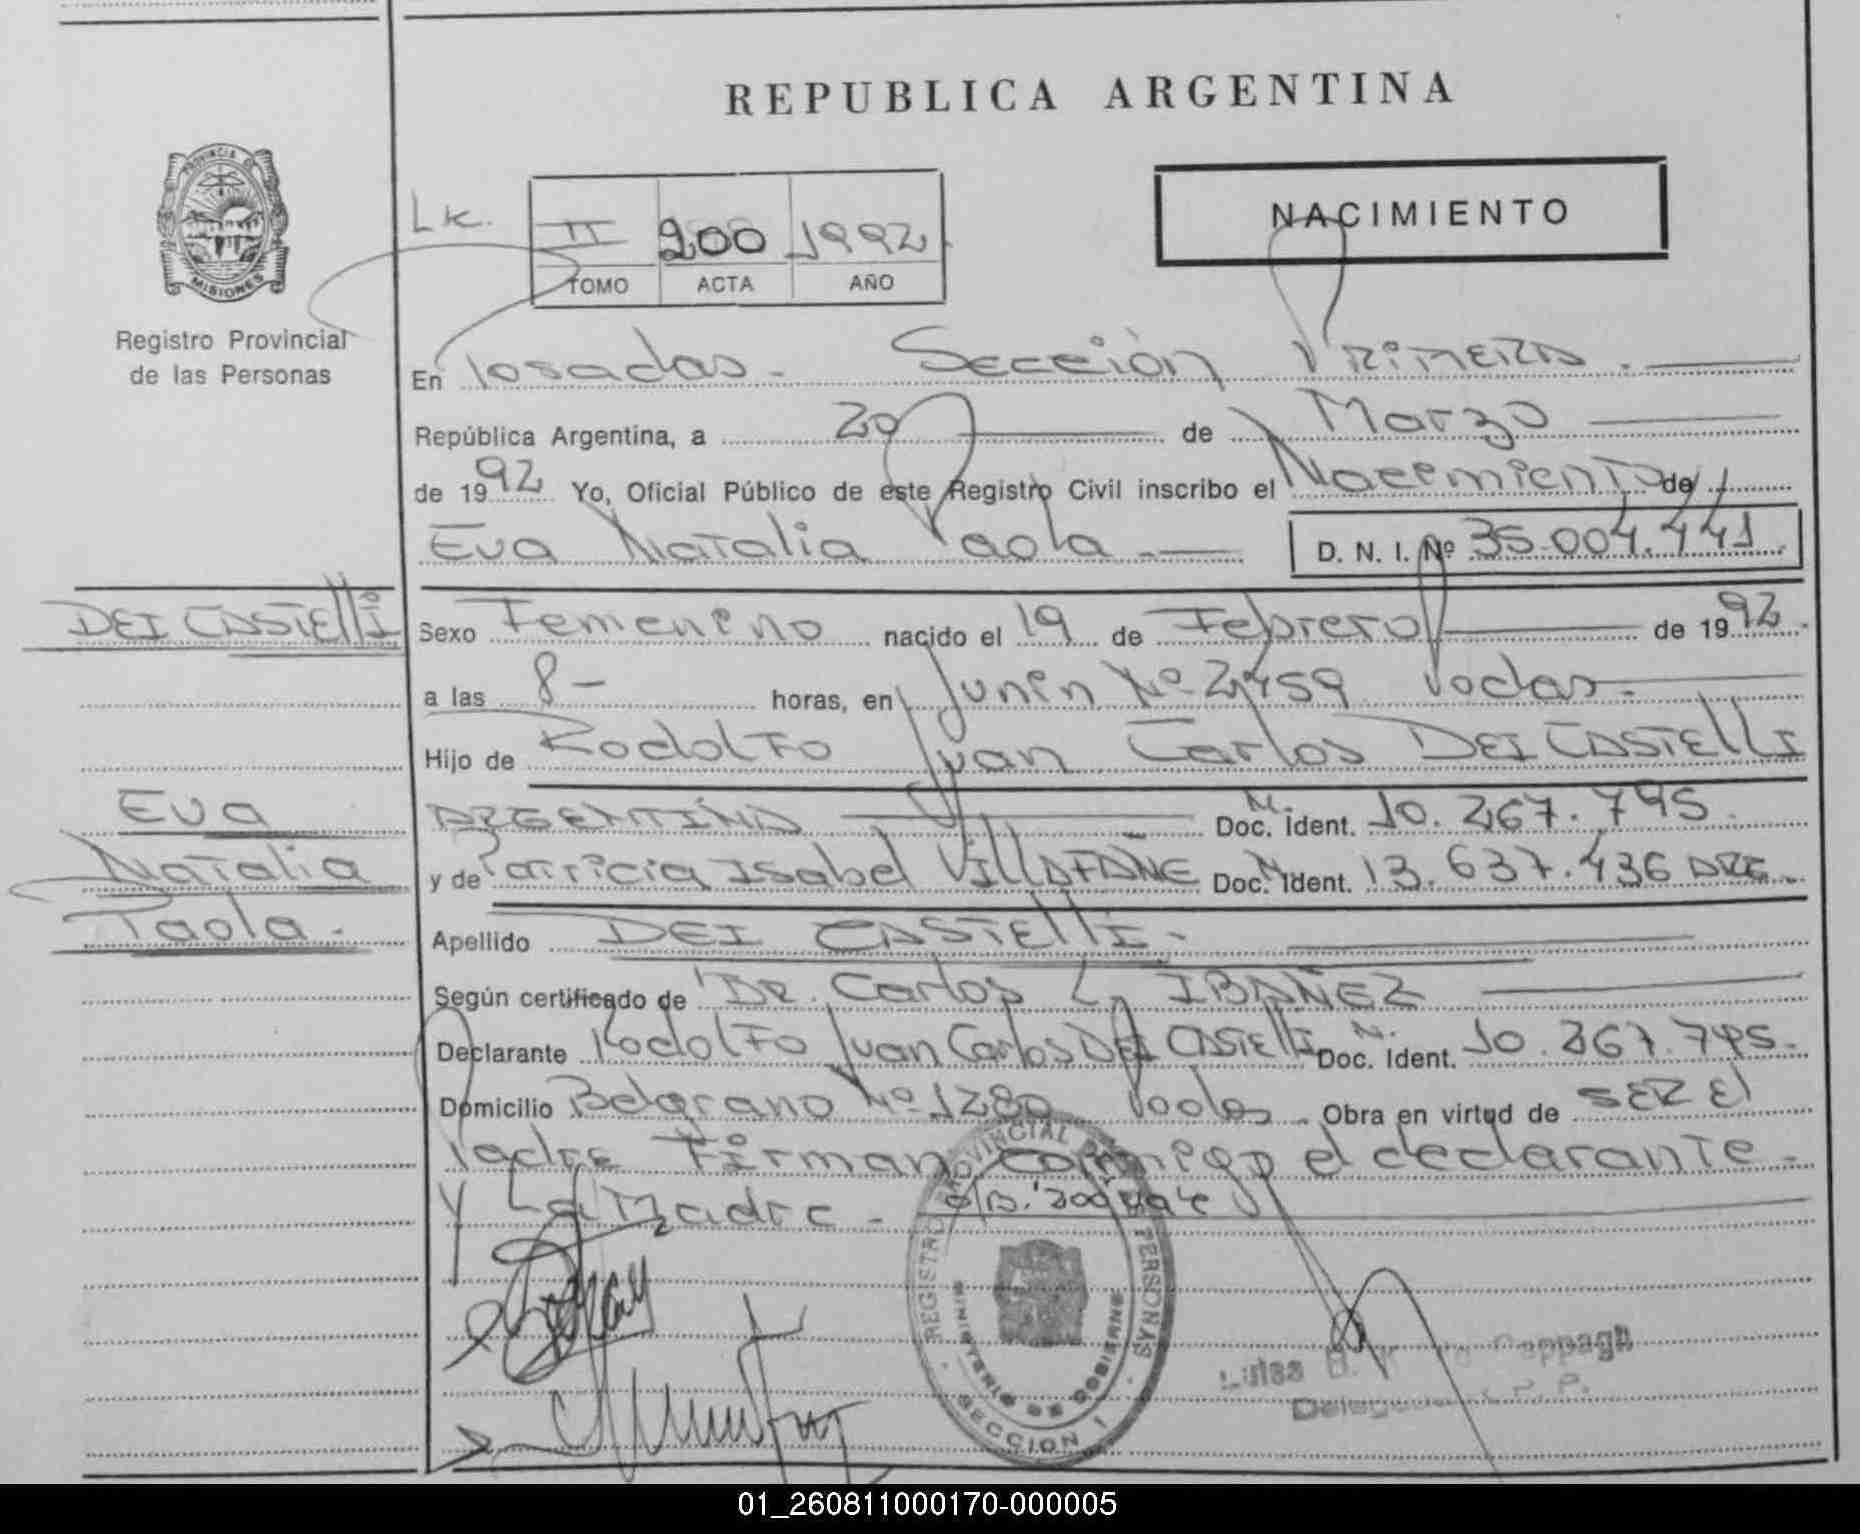 REPUBLICA ARGENTINA
PROVINCIA DE
MISIONES
Registro Provincial
de las Personas
NACIMIENTO
Lic.
II 200 1992
TOMO ACTA AÑO
En Posadas. Sección PRIMERA.
República Argentina, a 20 de Marzo
de 1992 Yo, Oficial Público de este Registro Civil inscribo el Nacimiento de
Eva Natalia Paola. D. N. I. Nº 35.004.441.
DEI CASTEllI
Sexo Femenino nacido el 19 de Febrero de 1992.
a las 8- horas, en Junín Nº 2459 Podas.
Hijo de Rodolfo Juan Carlos DEI CASTEllI
Eva
Natalia
Paola.
ARGENTINO Doc. N. Ident. 10.267.795.
y de Patricia Isabel VIllAFAÑE Doc. N. Ident. 13.637.436 ARG.
Apellido DEI CASTEllI.
Según certificado de DR. Carlos L. IBAÑEZ
Declarante Rodolfo Juan Carlos DEI CASTEllI Doc. N. Ident. 10.267.795.
Domicilio Belgrano Nº 1280 Podas. Obra en virtud de SER El
Padre Firman conmigo el declarante.
y La Madre.
REGISTRO PROVINCIAL PERSONAS
MINISTERIO DE GOBIERNO
SECCION I
Luisa
01_260811000170-000005